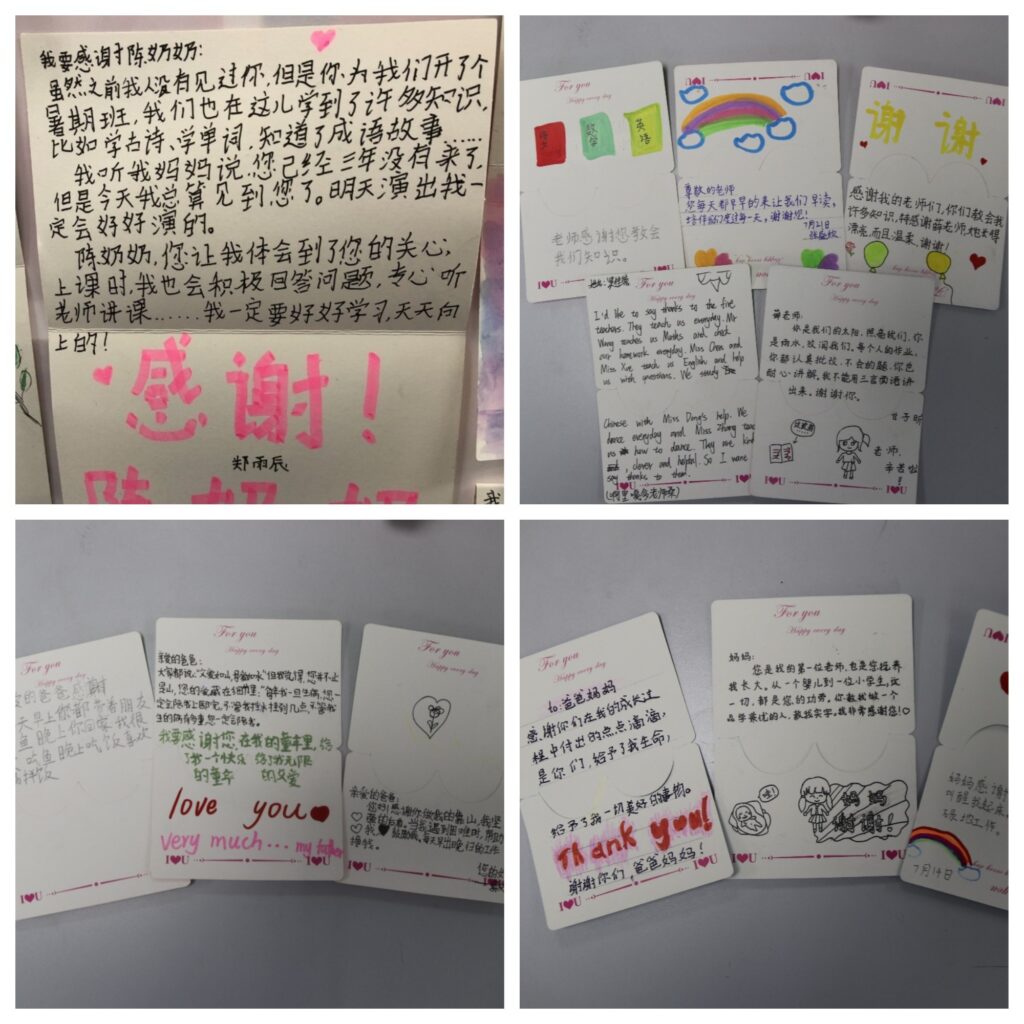 我要感谢陈奶奶:
虽然之前我从没有见过你,但是你为我们开了个
暑期班,我们也在这儿学到了许多知识,
比如学古诗、学单词,知道了成语故事……
我听我妈妈说,您已经三年没有来了,
但是今天我总算见到您了。明天演出我一
定会好好演的。
陈奶奶,您让我体会到了您的关心,
上课时,我也会积极回答问题,专心听
老师讲课……我一定要好好学习,天天向
上的!
感谢!
郑雨辰
陈奶奶
For you
Happy every day
语文
数学
英语
老师感谢您教会
我们知识。
I♥U
I♥U
尊敬的老师
您每天都早早的来让我们早读。
陪伴我们度过每一天。谢谢您!
7月21日
I♥U
谢谢
感谢我的老师们,你们教会我
许多知识,特感谢薛老师,她长得
漂亮,而且温柔。谢谢!
For you
I'd like to say thanks to the five
teachers. They teach us everyday. Mr
Wang teaches us Maths and check
our homework everyday. Miss Chen and
Miss Xue teach us English and help
us with questions. We study
Chinese with Miss Dong's help. We
dance everyday and Miss Zhong teach
us how to dance. They are kind
, clever and helpful. So I want
say thanks to them.
I♥U
For you
Happy every day
薛老师:
你是我们的太阳,照亮我们,你
是雨水,滋润我们。每个人的作业,
你都认真批改,不会的题,你也
耐心讲解,我不能用三言两语讲
出来。谢谢你。
老师,
辛苦啦
!
I♥U
I♥U
For you
Happy every day
的爸爸感谢
天早上你都带着朋友
鱼晚上你回家我很
吃鱼晚上吃饭喜欢
样饭
I♥U
For you
Happy every day
亲爱的爸爸:
我要感谢您,在我的童年里,给
了我一个快乐 给了我无限
的童年 的父爱
love you
very much... my father
I♥U
I♥U
For you
Happy every day
亲爱的爸爸:
您好!感谢你做我的靠山,我坚
挣钱。
I♥U
For you
Happy every day
to:爸爸妈妈
感谢你们在我的成长过
程中付出的点点滴滴,
是你们,给予了我生命,
给予了我一切美好的事物。
Thank you!
谢谢你们,爸爸妈妈!
I♥U
I♥U
For you
Happy every day
妈妈:
您是我的第一位老师,也是您抚养
我长大。从一个婴儿到一位小学生,这
一切,都是您的功劳。你教我做一个
品学兼优的人,教我实学。我非常感谢您!
哇!
妈妈
谢谢!
I♥U
I♥U
妈妈感谢
叫醒我起来
7月14日